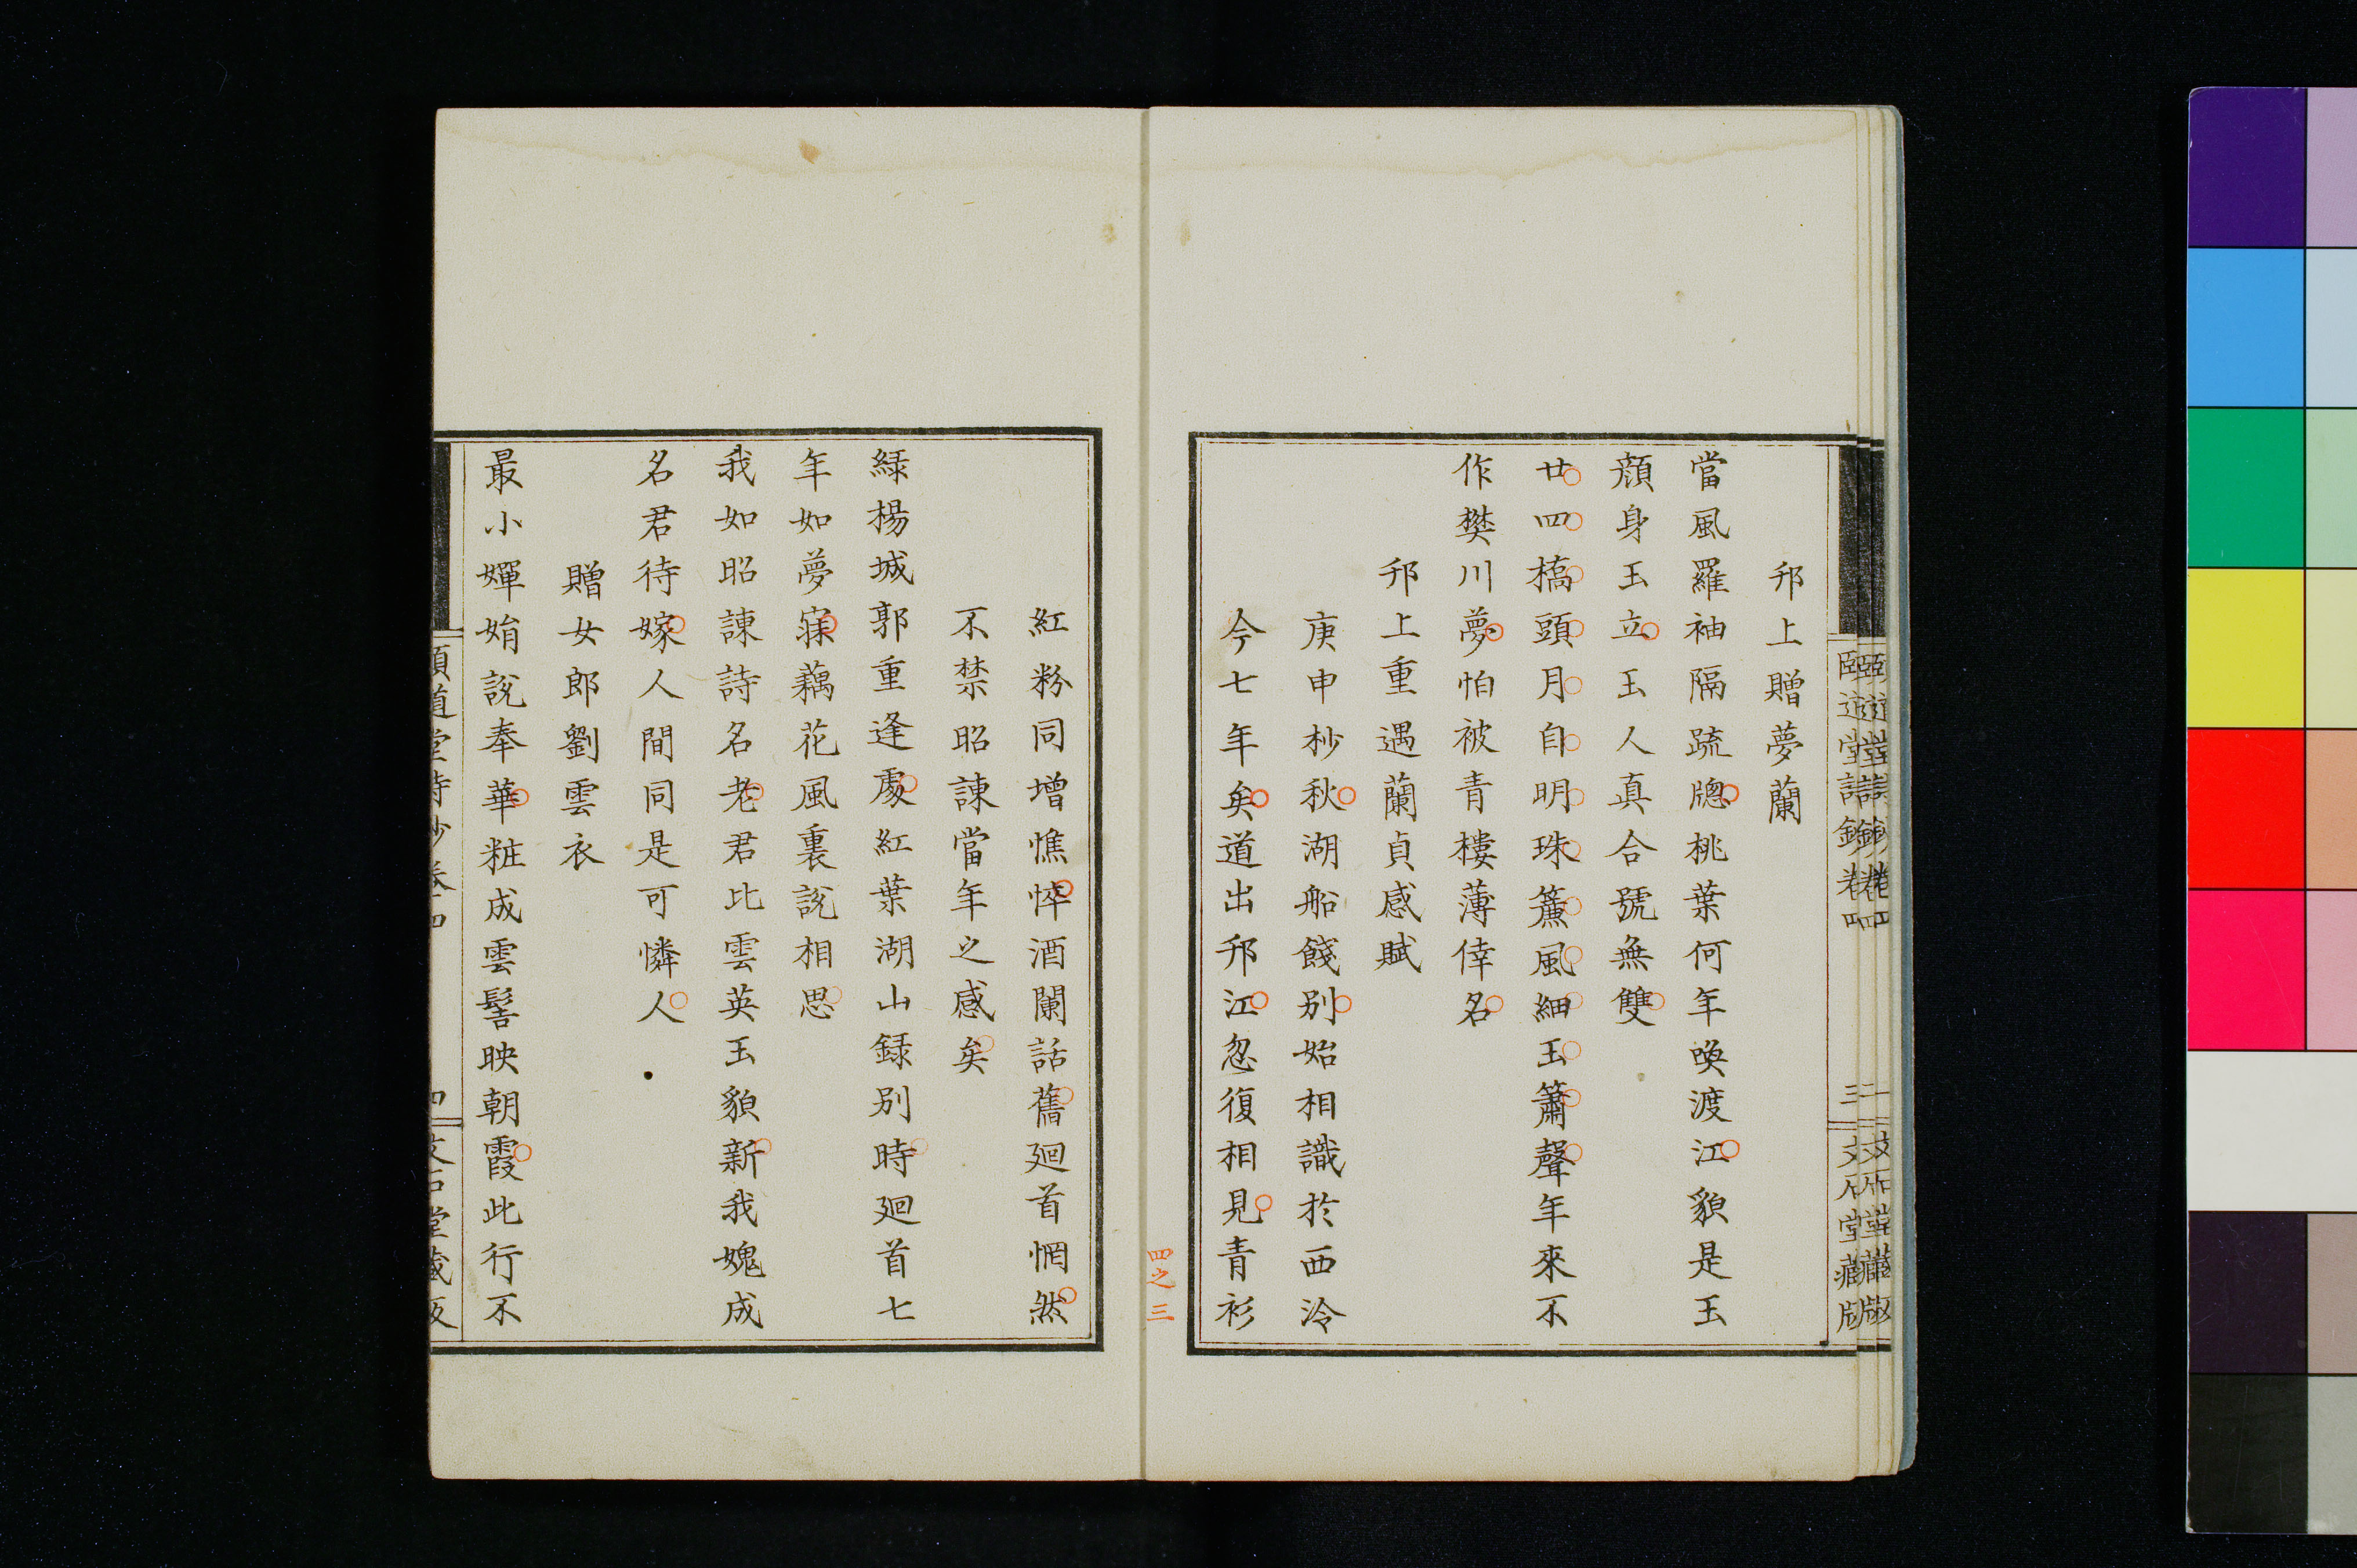 邗上贈夢蘭
當風羅袖隔疏牕桃葉何年喚渡江貌是玉
顔身玉立玉人真合號無雙
廿四橋頭月自明珠簾風細玉簫聲年來不
作樊川夢怕被青樓薄倖名
邗上重遇蘭貞感賦
庚申杪秋湖船餞别始相識於西泠
今七年矣道出邗江忽復相見青衫
四之三
紅粉同增憔悴酒闌話舊廻首惘然
不禁昭諫當年之感矣
綠楊城郭重逢處紅葉湖山録别時廻首七
年如夢寐藕花風裏說相思
我如昭諫詩名老君比雲英玉貌新我媿成
名君待嫁人間同是可憐人
贈女郎劉雲衣
最小嬋娟說奉華粧成雲髻映朝霞此行不
頤道堂詩鈔卷四
四
文石堂藏版